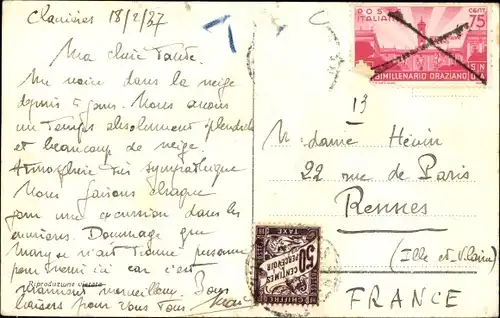 Clavières 18/2/37
Ma chère Tante.
Me voici dans la neige
depuis 5 jours. Nous avons
un temps absolument splendide
et beaucoup de neige.
Atmosphère très sympathique
Nous faisons chaque
jour une excursion dans les
environs. Dommage que
n'ait personne
pour venir ici car c'est
vraiment merveilleux. Bons
baisers pour vous tous
Riproduzione vietata
T
POSTE
ITALIANE
CENT.
75
BIMILLENARIO ORAZIANO
13
Madame Hévin
22 rue de Paris
Rennes
(Ille et Vilaine)
FRANCE
CHIFFRE
50
CENTIMES
À PERCEVOIR
TAXE